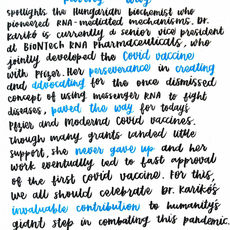 spotlights the Hungarian biochemist who
pioneered RNA-mediated mechanisms. Dr.
Karikó is currently a senior vice president
at BioNTech RNA Pharmaceuticals, who
jointly developed the Covid vaccine
with Pfizer. Her perseverance in creating
and advocating for the once dismissed
concept of using messenger RNA to fight
diseases, paved the way for today's
Pfizer and Moderna Covid vaccines.
Though many grants landed little
support, she never gave up and her
work eventually led to fast approval
of the first covid vaccine. For this,
we all should celebrate Dr. Karikó's
invaluable contribution to humanity's
giant step in combating this pandemic.